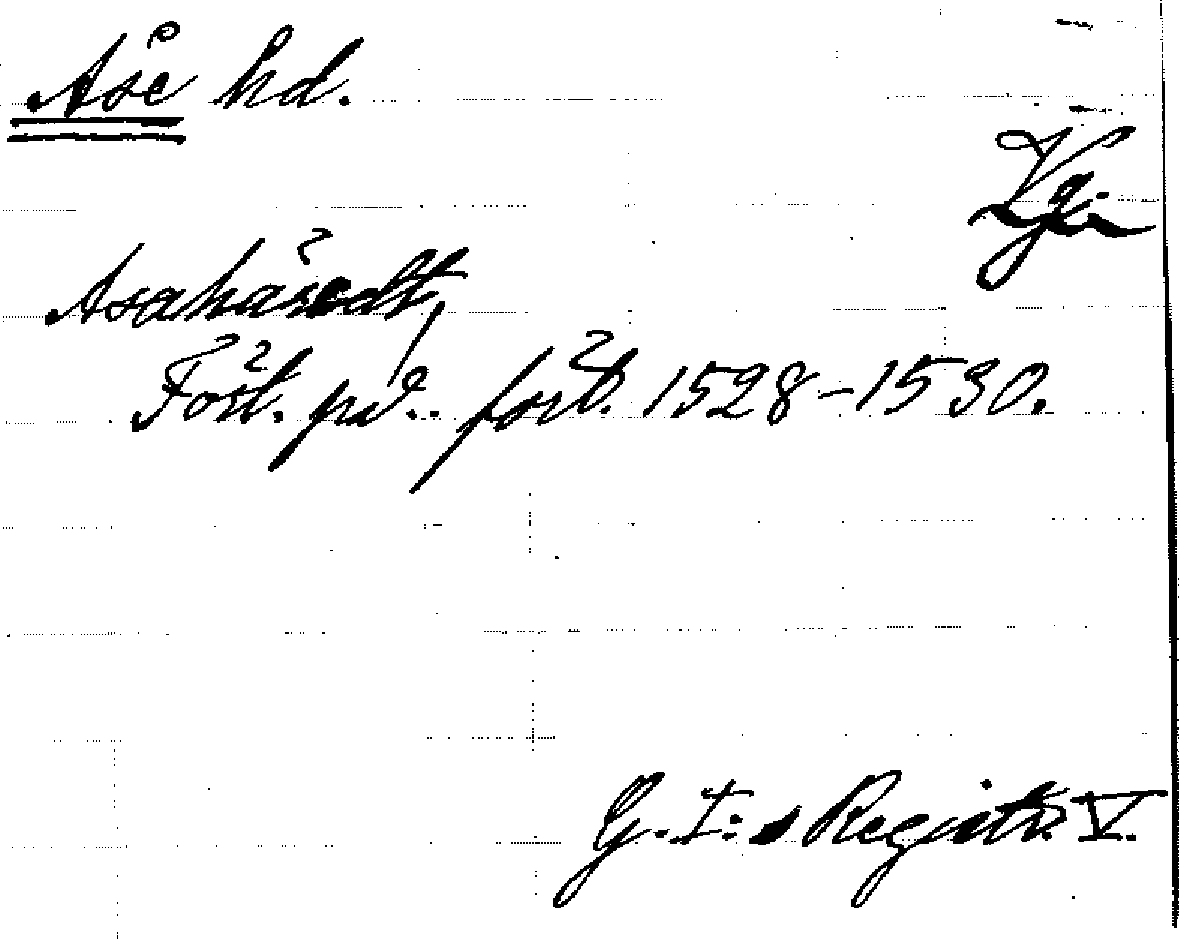 Åse hd.
Vg.
Asahäredt,
Fört. på förl. 1528-1530.
G. I:s Registr. V.